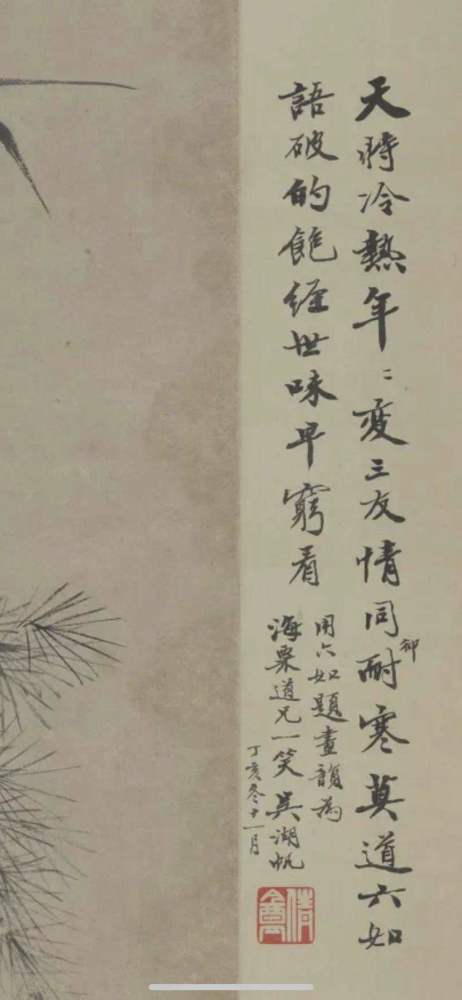 天時冷熱年〻變三友情同耐寒莫道六如
卻
語破的飽經世味早窮看
用六如題畫韻為
海粟道兄一笑吳湖帆
丁亥冬十一月